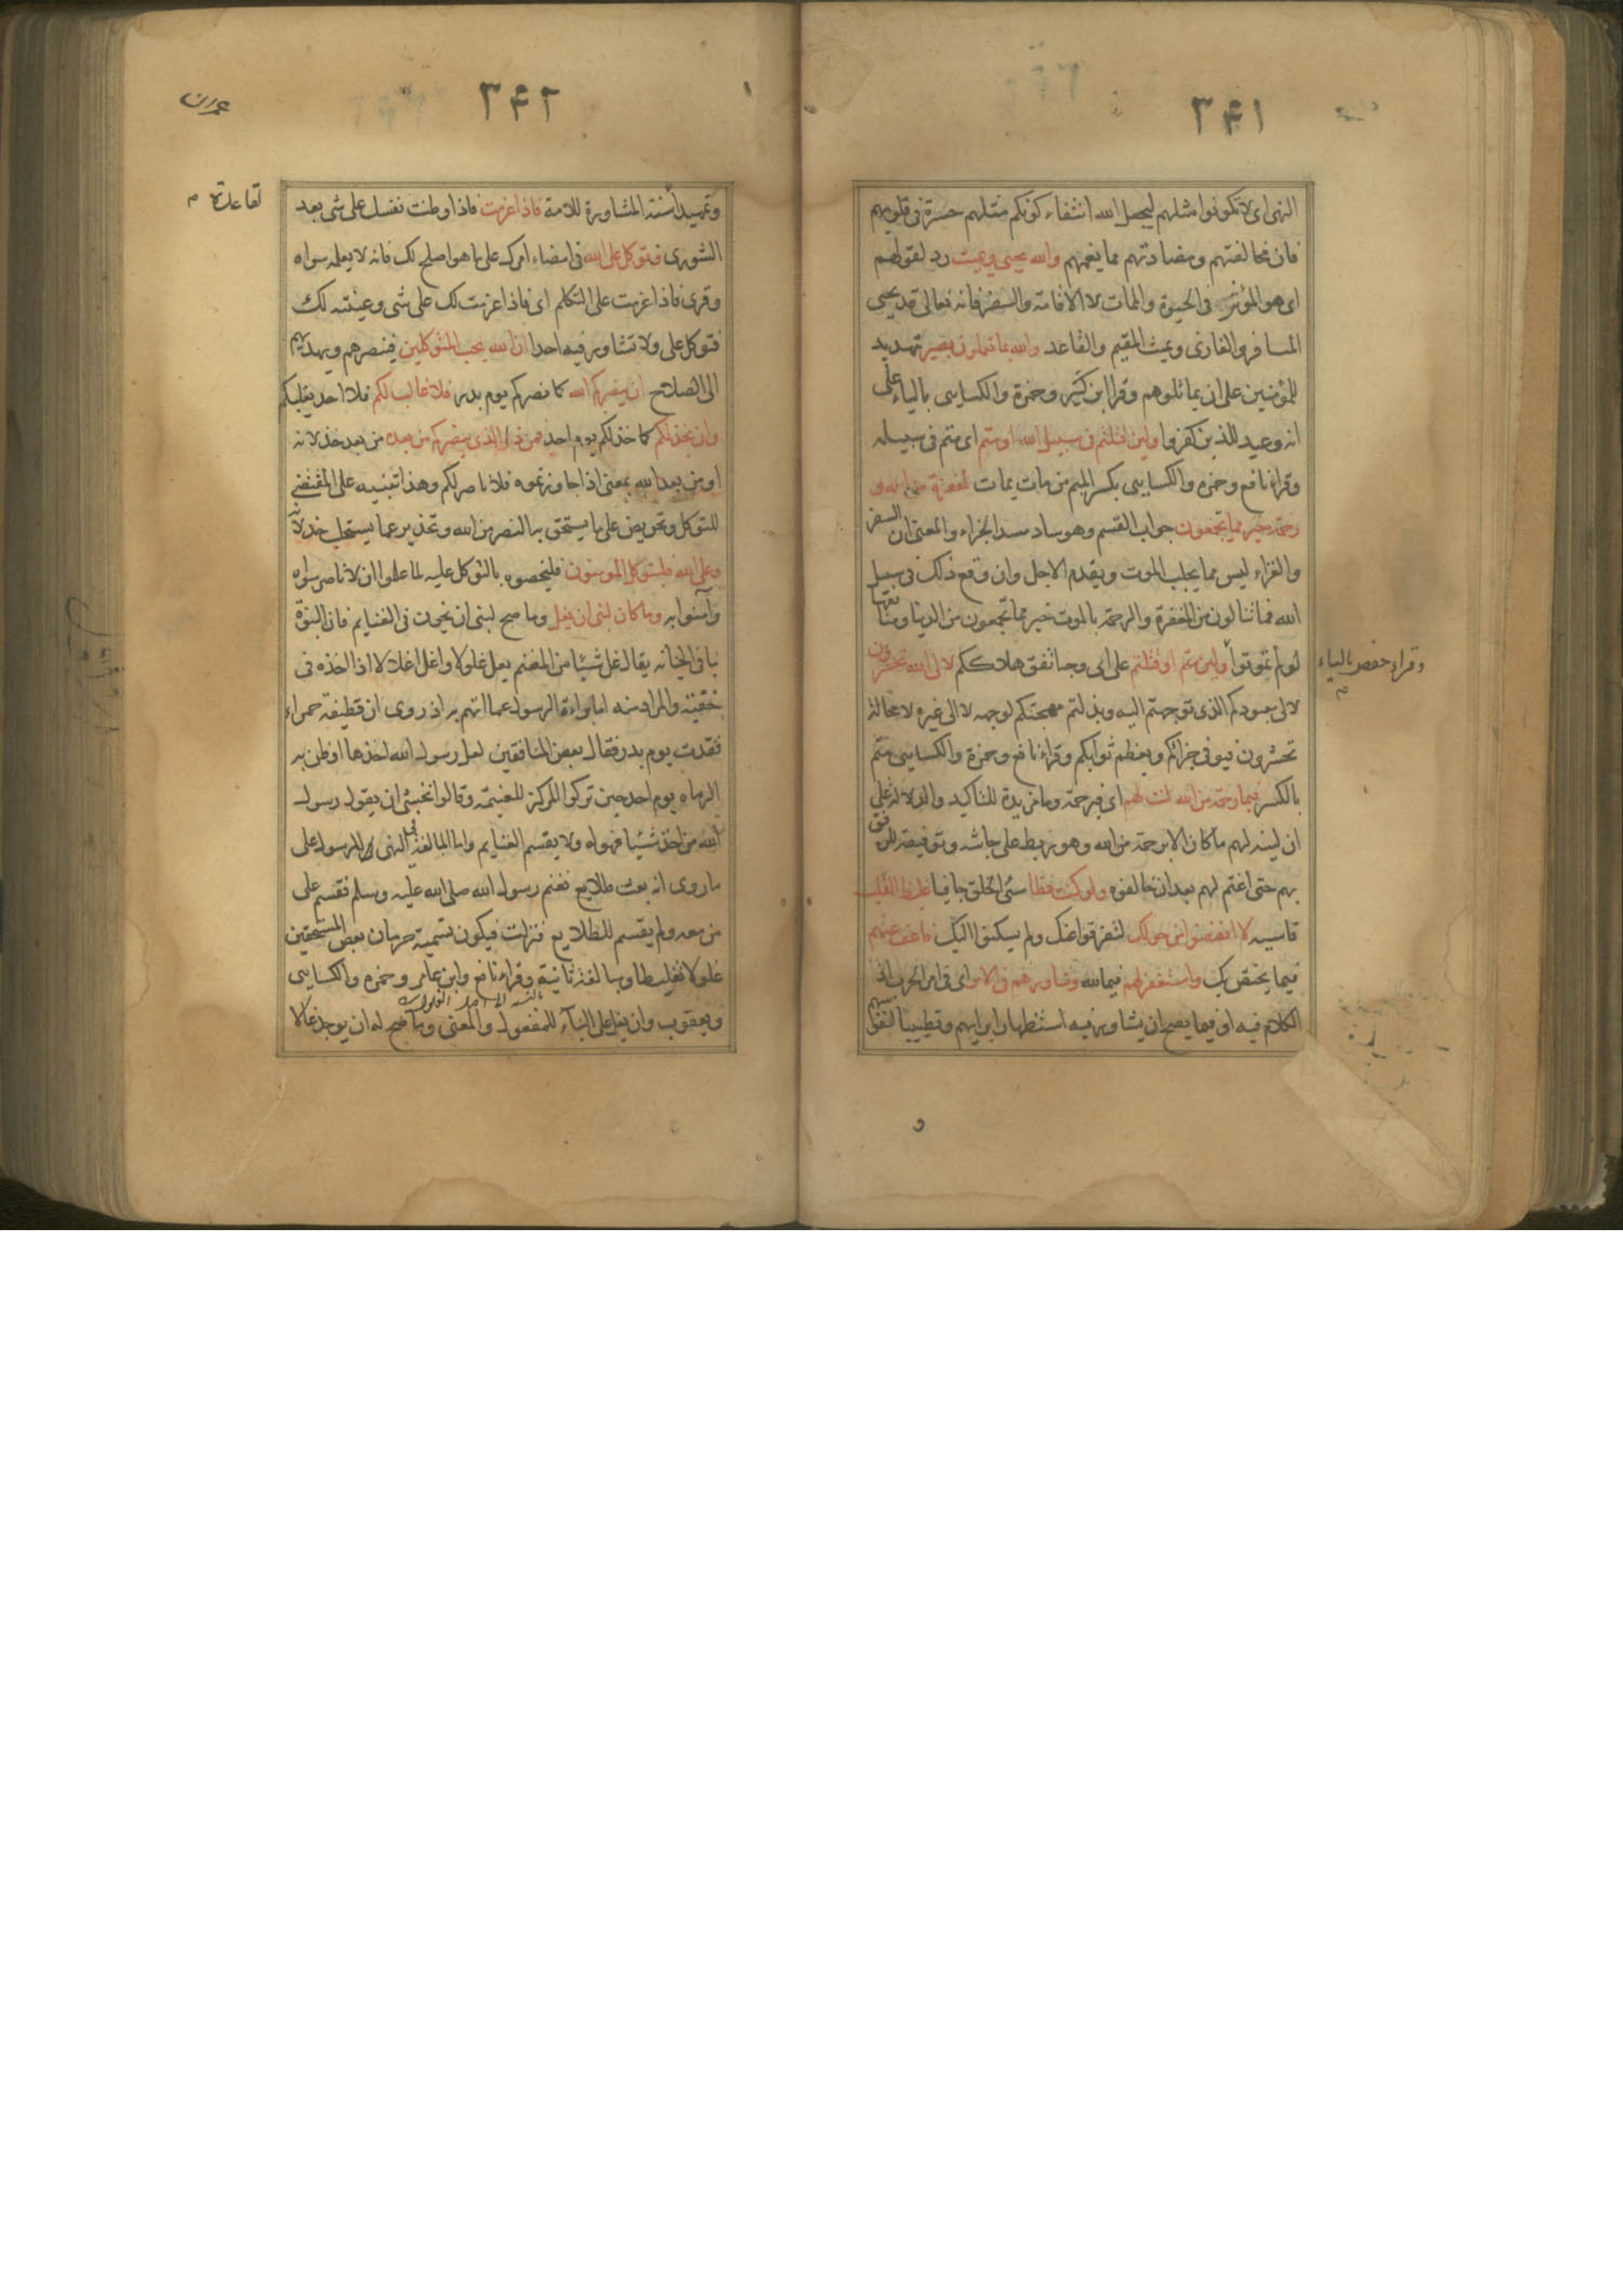 ۳۴۱
النهى اى لا تكونوا مثلهم ليجعل الله انتفاء كونكم مثلهم حسرة فى قلوبهم
فان مخالفتهم ومضادتهم مما يغمهم والله يحيى ويميت رد لقولهم
اى هو المؤثر فى الحيوة والممات لا الاقامة والسفر فانه تعالى قد يحيى
المسافر والغازى ويميت المقيم والقاعد والله بما تعملون بصير تهديد
للمؤمنين على ان يماثلوهم وقرا ابن كثير وحمزة والكسايى بالياء على
انه وعيد للذين كفروا ولين قتلتم فى سبيل الله او متم اى متم فى سبيله
وقرا نافع وحمزه والكسايى بكسر الميم من مات يمات لمغفرة من الله و
رحمة خير مما يجمعون جواب القسم وهو ساد مسد الجزاء والمعنى ان السفر
والغزاء ليس مما يجلب الموت ويقدم الاجل وان وقع ذلك فى سبيل
الله فما تنالون من المغفرة والرحمة بالموت خير مما تجمعون من الدنيا ومنافعها
لو لم تموتوا ولين متم او قتلتم على اى وجه اتفق هلاككم لالى الله تحشرون
وقراء حفص بالياء م
لالى معبودكم الذى توجهتم اليه وبذلتم مهجتكم لوجهه لا الى غيره لا محالة
تحشرون فيوفى جزائكم ويعظم ثوابكم وقراء نافع وحمزة والكسايى متم
بالكسر فبما رحمة من الله لنت لهم اى فبرحمة وما مزيدة للتاكيد والدلالة على
ان لينه لهم ما كان الا برحمة من الله وهو ربطه على جاشه وتوفيقه للرفق
بهم حتى اغتم لهم بعد ان خالفوه ولو كنت فظا سئ الخلق جافيا غليظ القلب
قاسيه لا انفضوا من حولك لتفرقوا عنك ولم يسكنوا اليك فاعف عنهم
فيما يختص بك واستغفر لهم فيما لله وشاورهم فى الامر اى فى امر الحرب اذ
الكلام فيه او فيما يصح ان يشاور فيه استظهارا برايهم وتطييبا لنفوسهم
و
۳۴۲
عمران
وتمهيدا لسنة المشاورة للامة فاذا عزمت فاذا وطنت نفسك على شى بعد
الشورى فتوكل على الله فى امضاء امرك على ما هو اصلح لك فانه لا يعلمه سواه
وقرى فاذا عزمت على التكلم اى فاذا عزمت لك على شى وعينته لك
فتوكل على ولا تشاور فيه احدا ان الله يحب المتوكلين فينصرهم ويهديهم
الى الصلاح ان ينصركم الله كما نصركم يوم بدر فلا غالب لكم فلا احد يغلبكم
وان يخذلكم كما خذلكم يوم احد فمن ذا الذى ينصركم من بعده من بعد خذلانه
او من بعد الله بمعنى اذا جاوزتموه فلا ناصر لكم وهذا تنبيه على المقتضى
للتوكل وتحريض على ما يستحق به النصر من الله وتحذير عما يستجلب خذلانه
وعلى الله فليتوكل المومنون فليخصوه بالتوكل عليه لما علموا ان لا ناصر سواه
وآمنوا به وما كان لنبى ان يغل وما صح لنبى ان يخون فى الغنايم فان النبوة
تنافى الخيانه يقال غل شيئا من المغنم يغل غلولا واغل اغلالا اذا اخذه فى
خفية والمراد منه اما براءة الرسول عما اتهم به اذ روى ان قطيفة حمراء
فقدت يوم بدر فقال بعض المنافقين لعل رسول الله اخذها او ظن به
الرماه يوم احد حين تركوا المركز للغنيمة وقالوا نخشى ان يقول رسول
الله من اخذ شيئا فهو له ولا يقسم الغنايم واما المبالغة فى النهى للرسول على
ما روى انه بعث طلايع فغنم رسول الله صلى الله عليه وسلم فقسم على
من معه ولم يقسم للطلايع فنزلت فيكون تسمية حرمان بعض المستحقين
غلولا تغليظا ومبالغة ثانية وقراء نافع وابن عامر وحمزه والكسايى
ويعقوب وان يغل على البناء للمفعول والمعنى وما صح له ان يوجد غالا